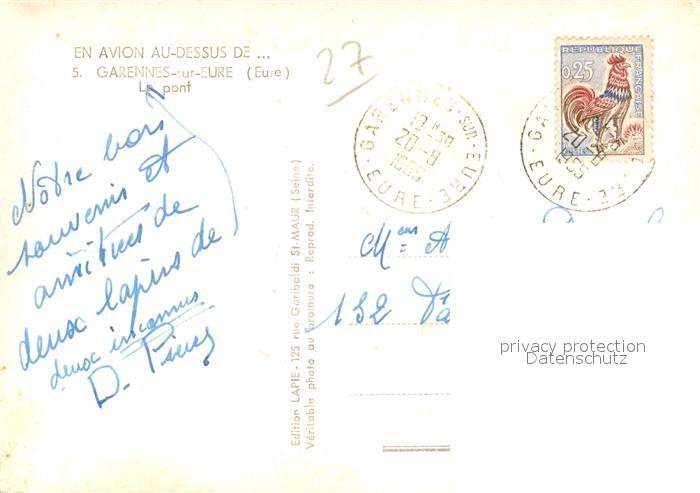 EN AVION AU-DESSUS DE ...
5. GARENNES-sur-EURE (Eure)
Le pont
27
RÉPUBLIQUE
FRANÇAISE
0,25
GARENNES-SUR-EURE
EURE
20-8
1965
souvenirs et
amitiés de
deux lapins de
deux inconnus
D.
Edition LAPIE - 125 rue Garibaldi St-MAUR (Seine)
Véritable photo au bromure : Reprod. Interdite.
132
privacy protection
Datenschutz